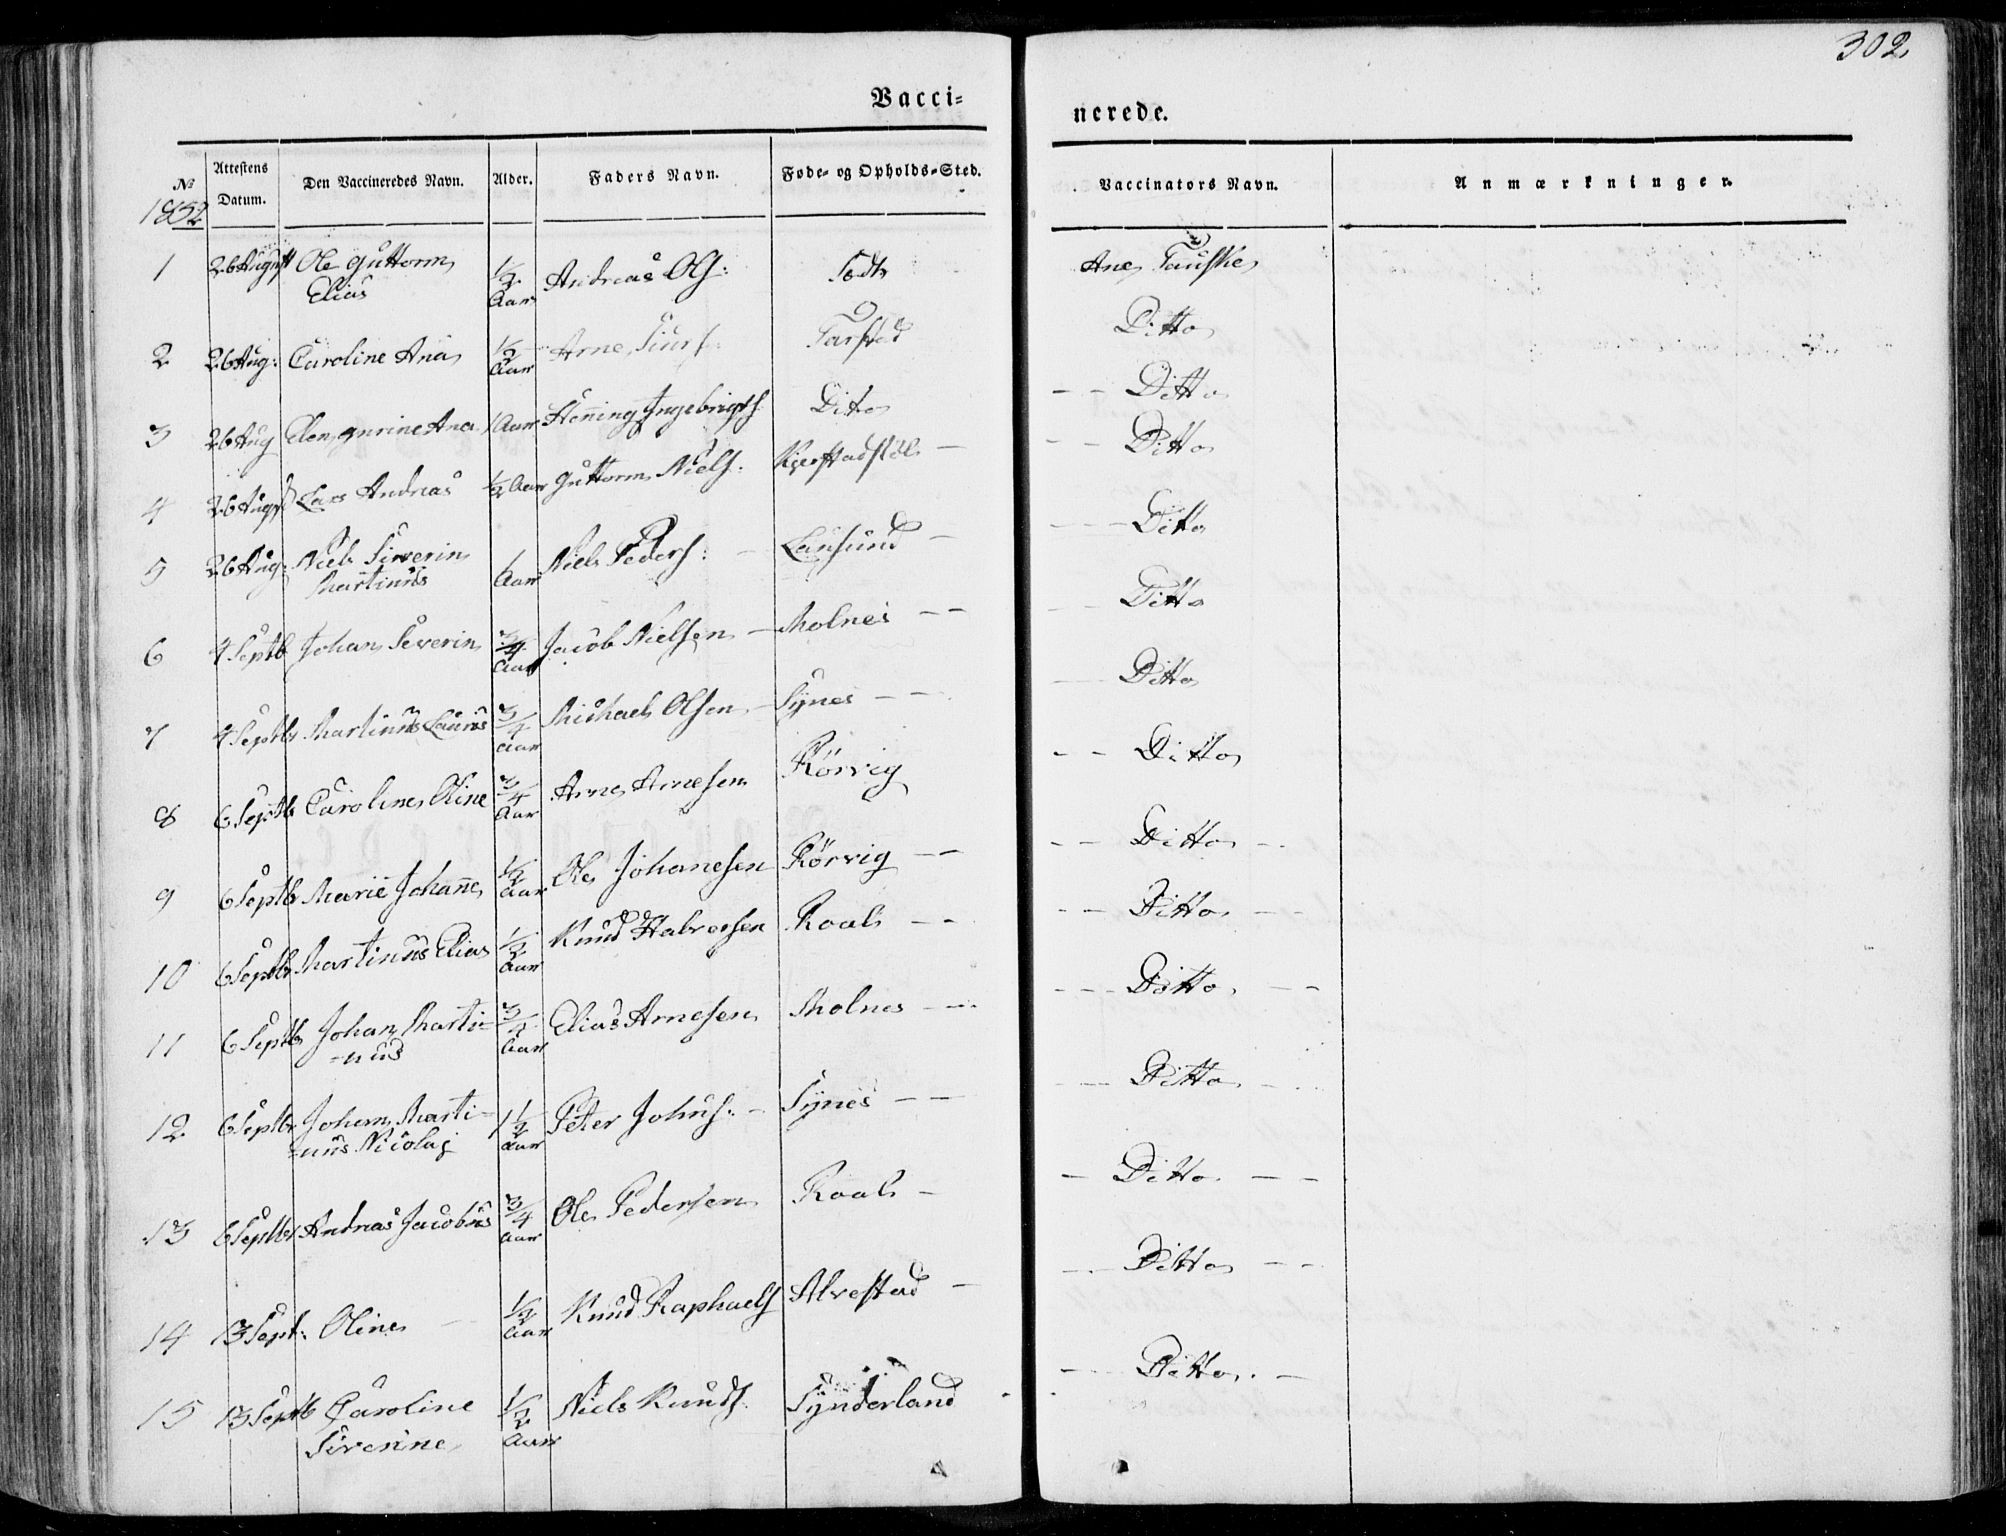 302
Vacci=
nerede.
№ Attestens Datum. Den Vaccineredes Navn. Alder. Faders Navn. Føde- og Opholds-Sted. Vaccinators Navn. Anmærkninger.
1852
1 26 August Ole Guttorm Elias 1/2 Aar Andreas Ols: Ane
2 26 Aug: Caroline Ana 1/2 Aar Arne Siurs: Tarstad Ditto
3 26 Aug Elen Gurine Ana 1 Aar Hening Ingebrigts Dito -- Ditto
4 26 Augst Lars Andreas 1/2 Aar Guttorm Niels: - -- Ditto
5 26 Aug: Niels Siverin Martinus 1 Aar Niels Peders: - - --- Ditto
6 4 Septb Johan Severin 3/4 Aar Jacob Nielsen - Molnes -- -- Ditto
7 4 Septb Martinus Laurus 3/4 Aar Michael Olsen - Synes --- -- Ditto
8 6 Septb Caroline Oline 3/4 Aar Arne Arnesen Rörvig -- Ditto
9 6 Septb Marie Johanne 1/2 Aar Ole Johanesen Rörvig -- -- Ditto -
10 6 Septb Martinus Elias 1/2 Aar Knud Halvorsen Roal -- -- Ditto --
11 6 Septb Johan Marti=
=nus 3/4 Aar Elias Arnesen Molnes --- --- Ditto --
12 6 Septbr Johan Marti=
=nus Nicolaj 1 1/2 Aar Peter Johns: - Synes -- --- Ditto -
13 6 Septbr Andreas Jacobus 3/4 Aar Ole Pedersen Roal - - Ditto --
14 13 Sept: Oline - 1/2 Aar Knud Raphaels Alvestad - -- Ditto --
15 13 Septb Caroline Siverine 1/2 Aar Niels Knuds: Synderland -- Ditto. -